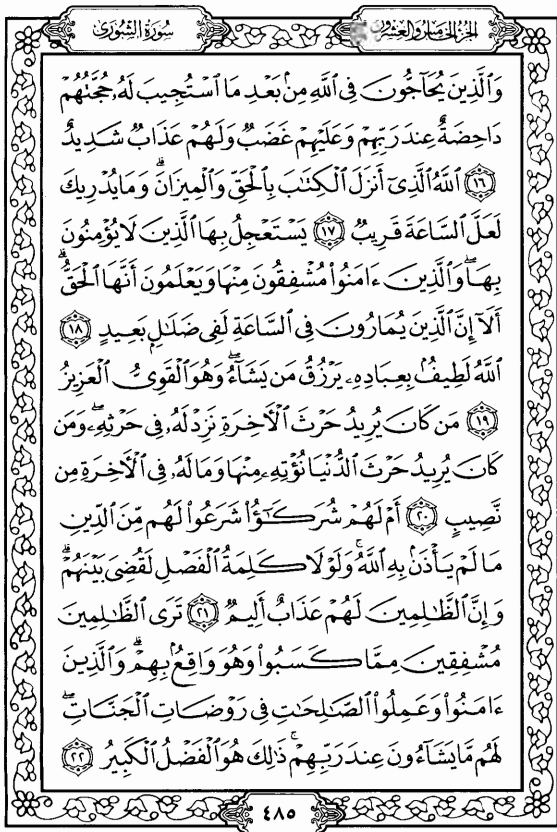 سُورَةُ الشُّورَىٰ
الجُزْءُ الخَامِسُ وَالعِشْرُونَ
وَالَّذِينَ يُحَآجُّونَ فِى ٱللَّهِ مِنۢ بَعْدِ مَا ٱسْتُجِيبَ لَهُۥ حُجَّتُهُمْ
دَاحِضَةٌ عِندَ رَبِّهِمْ وَعَلَيْهِمْ غَضَبٌ وَلَهُمْ عَذَابٌ شَدِيدٌ
١٦ ٱللَّهُ ٱلَّذِىٓ أَنزَلَ ٱلْكِتَٰبَ بِٱلْحَقِّ وَٱلْمِيزَانَ ۗ وَمَا يُدْرِيكَ
لَعَلَّ ٱلسَّاعَةَ قَرِيبٌ ١٧ يَسْتَعْجِلُ بِهَا ٱلَّذِينَ لَا يُؤْمِنُونَ
بِهَا ۖ وَٱلَّذِينَ ءَامَنُوا۟ مُشْفِقُونَ مِنْهَا وَيَعْلَمُونَ أَنَّهَا ٱلْحَقُّ ۗ
أَلَآ إِنَّ ٱلَّذِينَ يُمَارُونَ فِى ٱلسَّاعَةِ لَفِى ضَلَٰلٍۭ بَعِيدٍ ١٨
ٱللَّهُ لَطِيفٌۢ بِعِبَادِهِۦ يَرْزُقُ مَن يَشَآءُ ۖ وَهُوَ ٱلْقَوِىُّ ٱلْعَزِيزُ
١٩ مَن كَانَ يُرِيدُ حَرْثَ ٱلْءَاخِرَةِ نَزِدْ لَهُۥ فِى حَرْثِهِۦ ۖ وَمَن
كَانَ يُرِيدُ حَرْثَ ٱلدُّنْيَا نُؤْتِهِۦ مِنْهَا وَمَا لَهُۥ فِى ٱلْءَاخِرَةِ مِن
نَّصِيبٍ ٢٠ أَمْ لَهُمْ شُرَكَٰٓؤُا۟ شَرَعُوا۟ لَهُم مِّنَ ٱلدِّينِ
مَا لَمْ يَأْذَنۢ بِهِ ٱللَّهُ ۚ وَلَوْلَا كَلِمَةُ ٱلْفَصْلِ لَقُضِىَ بَيْنَهُمْ ۗ
وَإِنَّ ٱلظَّٰلِمِينَ لَهُمْ عَذَابٌ أَلِيمٌ ٢١ تَرَى ٱلظَّٰلِمِينَ
مُشْفِقِينَ مِمَّا كَسَبُوا۟ وَهُوَ وَاقِعٌۢ بِهِمْ ۗ وَٱلَّذِينَ
ءَامَنُوا۟ وَعَمِلُوا۟ ٱلصَّٰلِحَاتِ فِى رَوْضَاتِ ٱلْجَنَّاتِ ۖ
لَهُم مَّا يَشَآءُونَ عِندَ رَبِّهِمْ ۚ ذَٰلِكَ هُوَ ٱلْفَضْلُ ٱلْكَبِيرُ ٢٢
٤٨٥